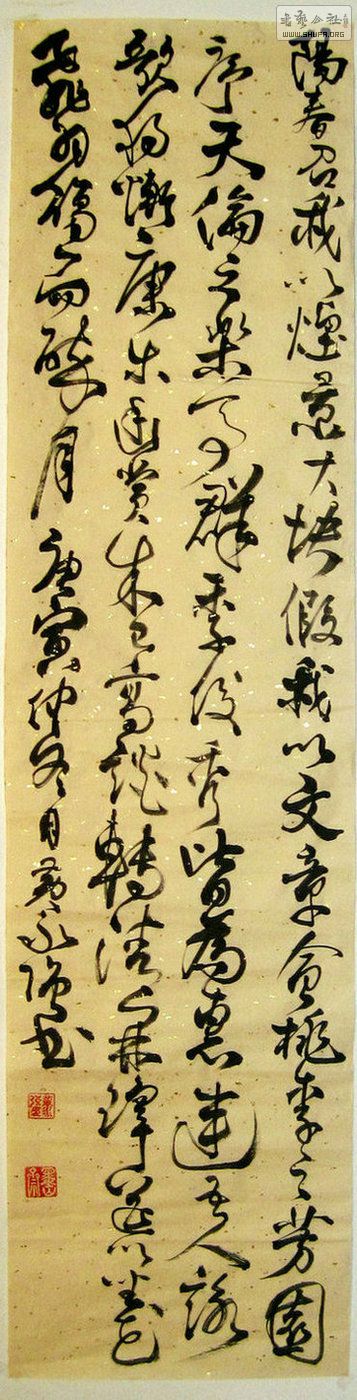 书艺公社
WWW.SHUFA.ORG
陽春召我以煙景大塊假我以文章會桃李之芳園
序天倫之樂事群季俊秀皆為惠連吾人詠
歌獨慚康樂幽賞未已高談轉清開瓊筵以坐花
飛羽觴而醉月 庚寅仲冬月黃書